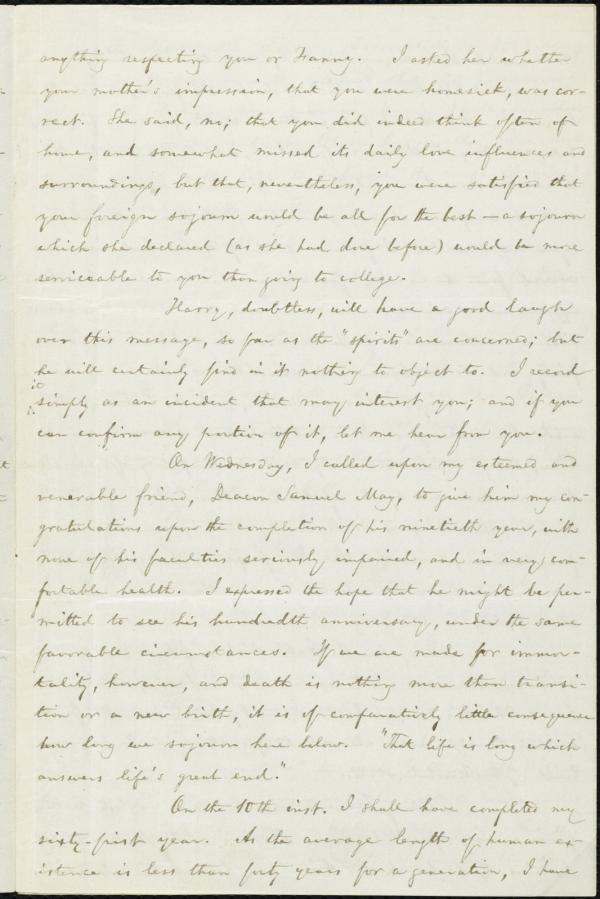 anything respecting you or Fanny. I asked her whether
your mother's impression, that you were homesick, was cor-
rect. She said, no; that you did indeed think often of
home, and somewhat missed its daily love influences and
surroundings, but that, nevertheless, you were satisfied that
your foreign sojourn would be all for the best — a sojourn
which she declared (as she had done before) would be more
serviceable to you than going to college.
Harry, doubtless, will have a good laugh
over this message, so far as the "spirits" are concerned; but
he will certainly find in it nothing to object to. I record
it
simply as an incident that may interest you; and if you
can confirm any portion of it, let me hear from you.
On Wednesday, I called upon my esteemed and
venerable friend, Deacon Samuel May, to give him my con-
gratulations upon the completion of his ninetieth year, with
none of his faculties seriously impaired, and in very com-
fortable health. I expressed the hope that he might be per-
mitted to see his hundredth anniversary, under the same
favorable circumstances. If we are made for immor-
tality, however, and death is nothing more than transi-
tion or a new birth, it is of comparatively little consequence
how long we sojourn here below. "That life is long which
answers life's great end."
On the 10th inst. I shall have completed my
sixty-first year. As the average length of human ex-
istence is less than forty years for a generation, I have